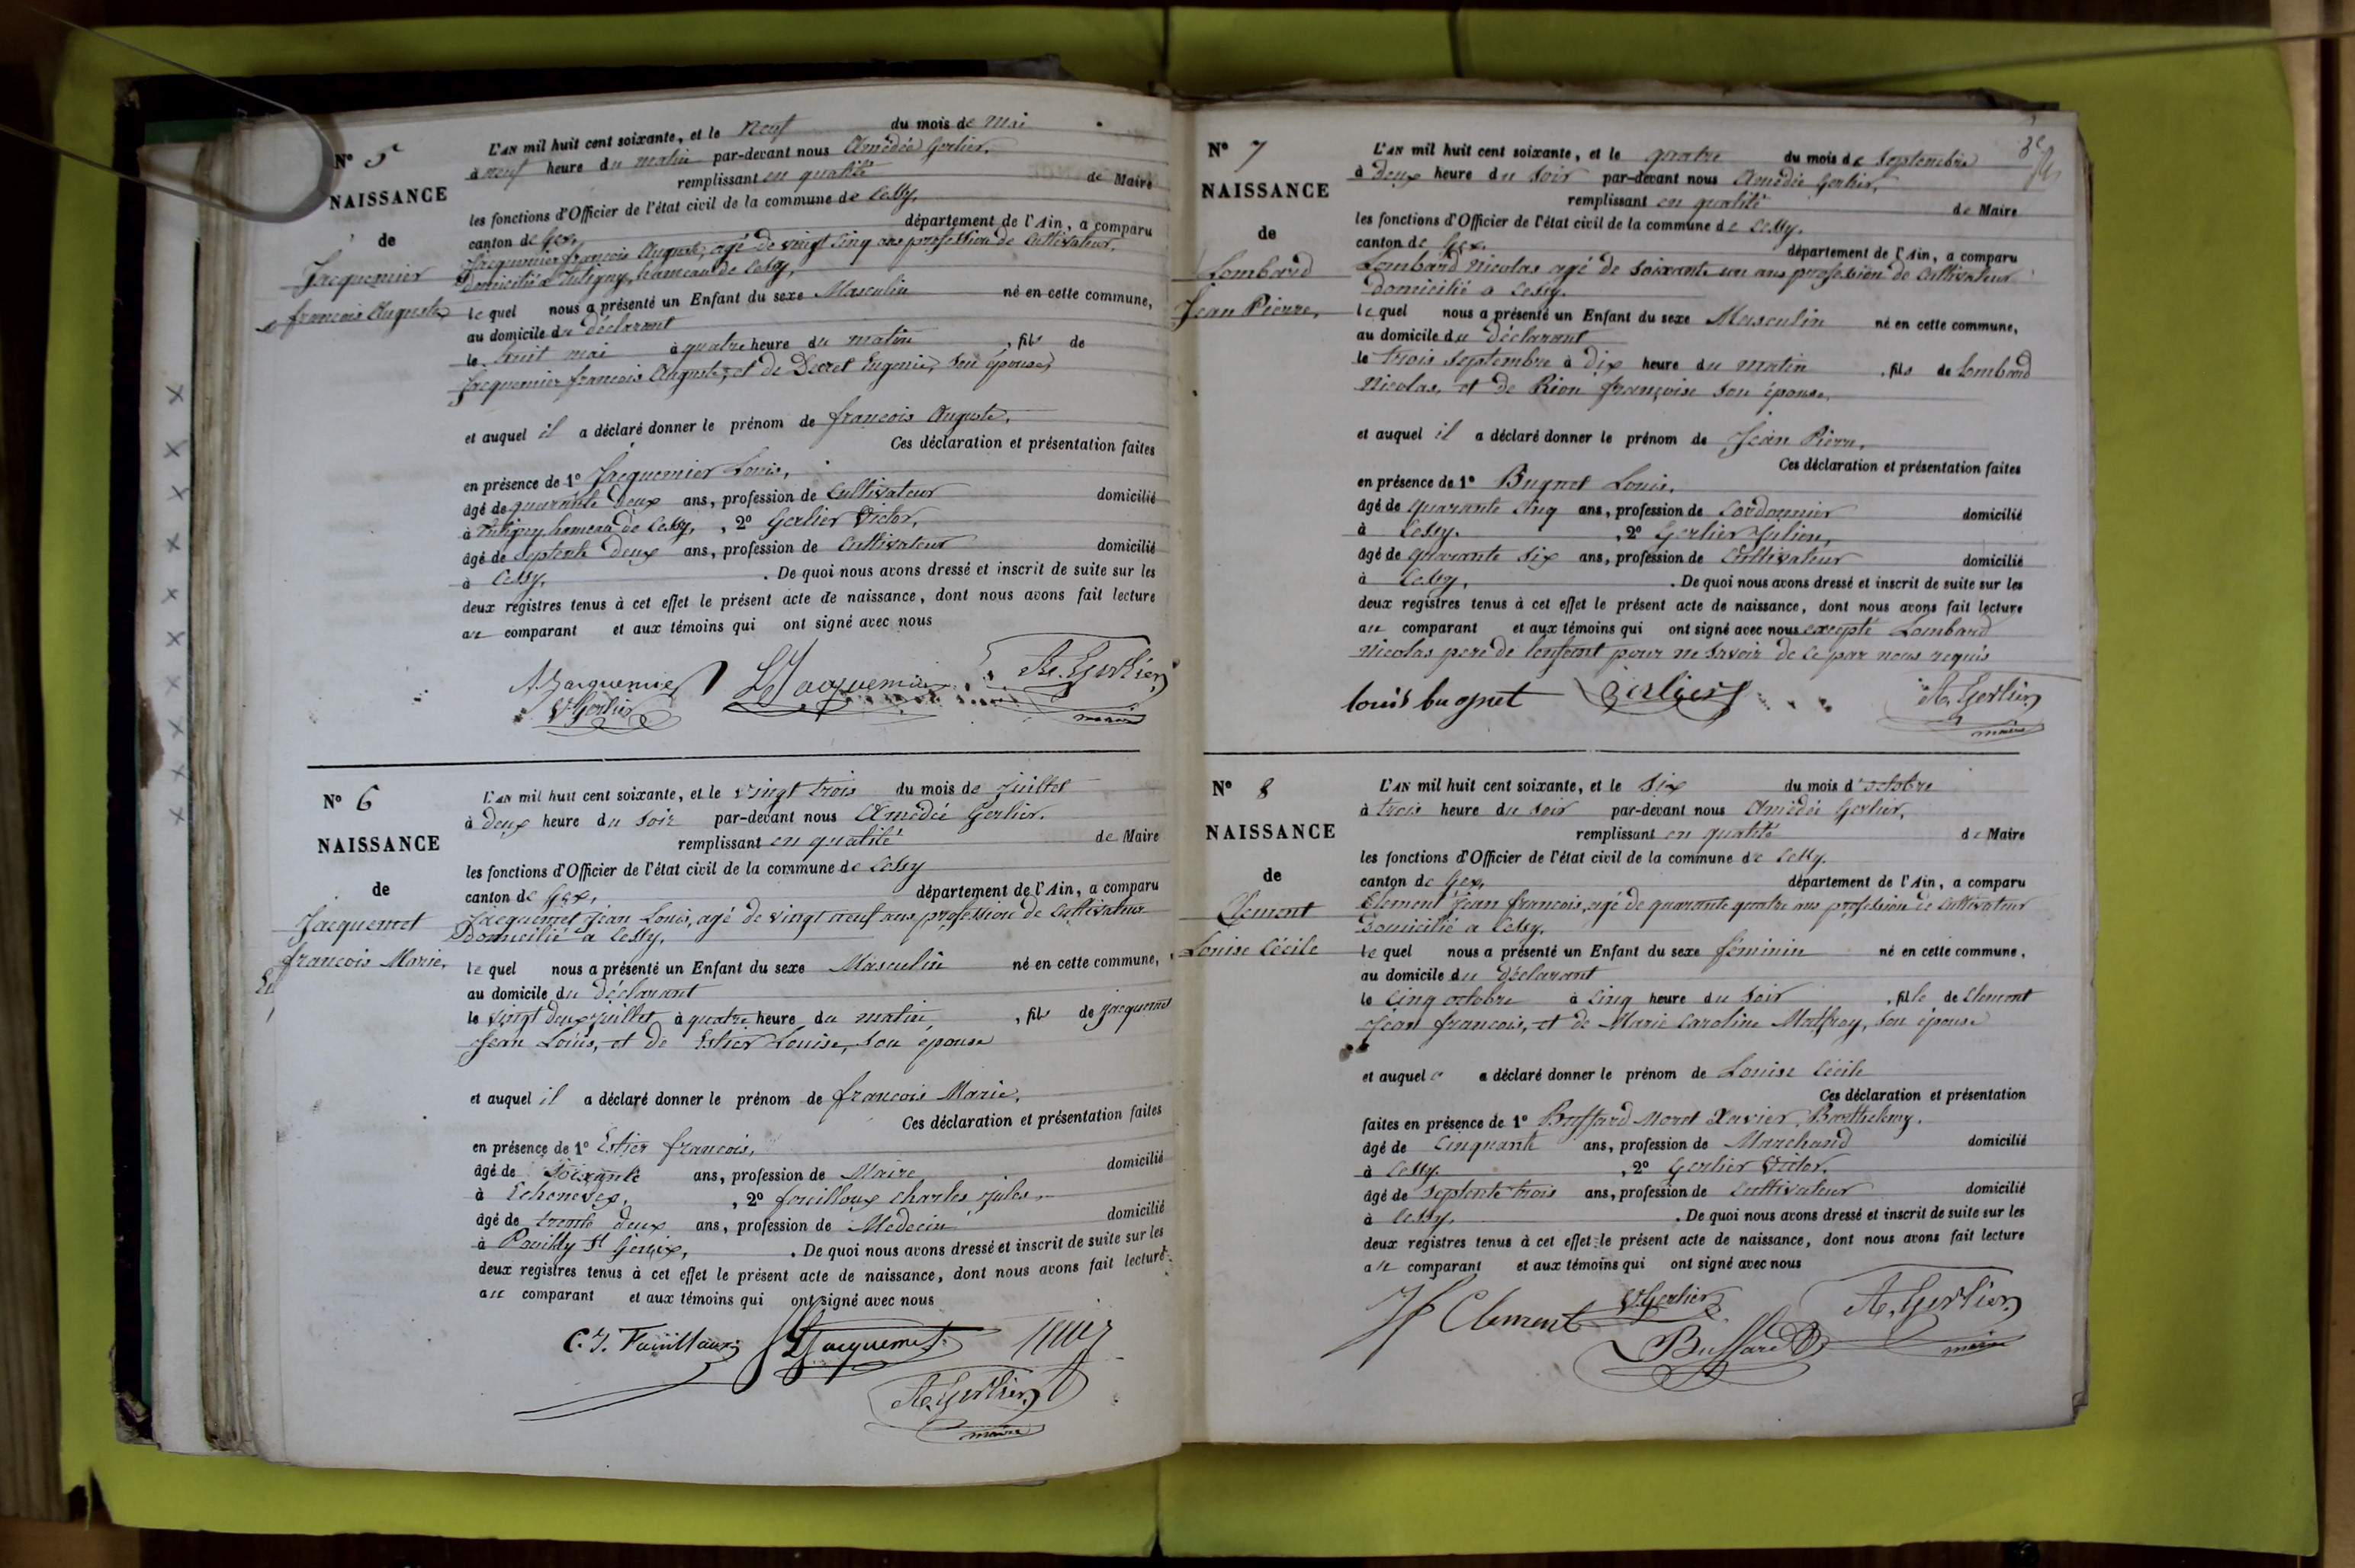 N° 5
NAISSANCE
de
Jacquemier
francois Auguste
L'AN mil huit cent soixante, et le neuf du mois de Mai
à neuf heure du matin par-devant nous Amédée Gerlier,
remplissant en qualité de Maire
les fonctions d'Officier de l'état civil de la commune de Cessy,
canton de Gex, département de l'Ain, a comparu
Jacquemier francois Auguste, agé de vingt cinq ans profession de Cultivateur,
Domicilié a Tutigny, hameau de Cessy,
le quel nous a présenté un Enfant du sexe Masculin né en cette commune,
au domicile du déclarant
le huit mai à quatre heure du matin , fils de
Jacquemier francois Auguste, et de Decret Eugenie, son épouse,
et auquel il a déclaré donner le prénom de francois Auguste,
Ces déclaration et présentation faites
en présence de 1° Jacquemier Louis,
âgé de quarante deux ans, profession de Cultivateur domicilié
à Tutigny hameau de Cessy, , 2° Gerlier Victor,
âgé de septente deux ans, profession de Cultivateur domicilié
à Cessy, . De quoi nous avons dressé et inscrit de suite sur les
deux registres tenus à cet effet le présent acte de naissance, dont nous avons fait lecture
au comparant et aux témoins qui ont signé avec nous
A. Jacquemier L. Jacquemier A. Gerlier
V. Gerlier maire
N° 6
NAISSANCE
de
Jacquemet
francois Marie,
L'AN mil huit cent soixante, et le vingt trois du mois de juillet
à deux heure du soir par-devant nous Amédée Gerlier.
remplissant en qualité de Maire
les fonctions d'Officier de l'état civil de la commune de Cessy
canton de Gex, département de l'Ain, a comparu
Jacquemet Jean Louis, agé de vingt neuf ans profession de Cultivateur
Domicilié a Cessy,
le quel nous a présenté un Enfant du sexe Masculin né en cette commune,
au domicile du déclarant
le vingt deux juillet à quatre heure du matin, , fils de Jacquemet
Jean Louis, et de Estier Louise, son epouse
et auquel il a déclaré donner le prénom de francois Marie,
Ces déclaration et présentation faites
en présence de 1° Estier francois,
âgé de Soixante ans, profession de Maire domicilié
à Echenevex, , 2° fouilloux Charles jules,
âgé de trente deux ans, profession de Medecin domicilié
à Pouilly St Genix, . De quoi nous avons dressé et inscrit de suite sur les
deux registres tenus à cet effet le présent acte de naissance, dont nous avons fait lecture
au comparant et aux témoins qui ont signé avec nous
C. J. Fouilloux JL Jacquemet
A. Gerlier
maire
N° 7
NAISSANCE
de
Lombard
Jean Pierre,
L'AN mil huit cent soixante, et le quatre du mois de Septembre
à Deux heure du Soir par-devant nous Amédée Gerlier,
remplissant en qualité de Maire
les fonctions d'Officier de l'état civil de la commune de Cessy.
canton de Gex. département de l'Ain, a comparu
Lombard Nicolas agé de soixante un ans profession de Cultivateur
domicilié a Cessy.
le quel nous a présenté un Enfant du sexe Masculin né en cette commune,
au domicile du Déclarant
le trois Septembre à dix heure du matin , fils de Lombard
Nicolas, et de Rion françoise son épouse,
et auquel il a déclaré donner le prénom de Jean Pierre,
Ces déclaration et présentation faites
en présence de 1° Bugnet Louis,
âgé de quarante cinq ans, profession de Cordonnier domicilié
à Cessy. , 2° Gerlier Julien,
âgé de quarante six ans, profession de Cultivateur domicilié
à Cessy, . De quoi nous avons dressé et inscrit de suite sur les
deux registres tenus à cet effet le présent acte de naissance, dont nous avons fait lecture
au comparant et aux témoins qui ont signé avec nous excepté Lombard
Nicolas pere de lenfant pour ne savoir de ce par nous requis
louis bugnet Gerlier A. Gerlier
maire
N° 8
NAISSANCE
de
Clement
Louise Cécile
L'AN mil huit cent soixante, et le Six du mois d'octobre
à trois heure du soir par-devant nous Amédée Gerlier,
remplissant en qualité de Maire
les fonctions d'Officier de l'état civil de la commune de Cessy.
canton de Gex, département de l'Ain, a comparu
Clement Jean francois, agé de quarante quatre ans profession de Cultivateur
Domicilié a Cessy.
le quel nous a présenté un Enfant du sexe féminin né en cette commune,
au domicile du Déclarant
le cinq octobre à cinq heure du Soir , fille de Clement
Jean francois, et de Marie Caroline Matfroy, son épouse
et auquel a déclaré donner le prénom de Louise Cécile
Ces déclaration et présentation
faites en présence de 1° Buffard Moret Xavier Barthelemy.
âgé de Cinquante ans, profession de Marchand domicilié
à Cessy. , 2° Gerlier Victor.
âgé de septente trois ans, profession de Cultivateur domicilié
à Cessy, . De quoi nous avons dressé et inscrit de suite sur les
deux registres tenus à cet effet le présent acte de naissance, dont nous avons fait lecture
au comparant et aux témoins qui ont signé avec nous
Jf Clement V. Gerlier A. Gerlier
Buffard maire